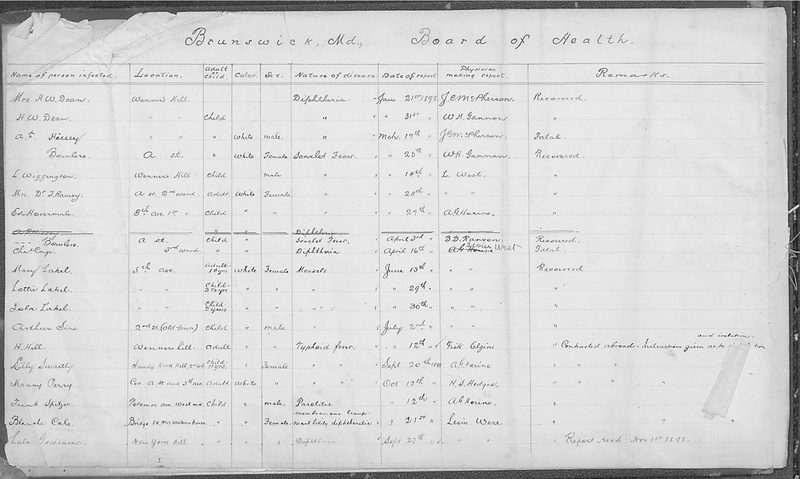 Brunswick, Md., Board of Health.
Name of person infected. Location. Adult or child. Color. Sex. Nature of disease. Date of report. Physician making report. Remarks.
Mrs H.W. Dean. Wenner's Hill Diphtheria Jan 21st 1898 J.E. McPherson. Recovered.
H.W. Dean. " " Child " " 31st " W.H. Gannon "
Hersey " " " White male. " Mch. 17th " J.E. McPherson. Fatal.
Bowlers. A st. " White Female Scarlet Fever. " 25th " W.H. Gannon Recovered.
L Wiggington. Wenner's Hill Child male " " 18th " L. West. "
Mrs. Dr. A st. 2nd ward. adult. White Female. " " 20th " " " "
Ed Hovermale. 8th av. 1st " Child " " " " 27th " "
Diphtheria
Bowlers. A st. Child " " Scarlet Fever. April 3rd " Recovered.
3rd ward. " " " Diphtheria April 16th " West Fatal.
Mary Lakel 5th ave. Adult 18yrs White Female Measels June 15th " " " Recovered
Lottie Lakel. " " Child " " " " 29th " " " "
Lakel. " " Child 2years " " " " 30th " " " "
Arthur 2nd st. (Old town) Child " male " July 2nd " " " "
and isolation.
H. Hill. Wenner's hill adult " " Typhoid fever. " 12th " Elgin " Contracted abroad - Instructions given
Lilly Swartly Sandy Hook Hill, 2nd wd. Child 11yrs. " Female " " Sept 20th 1898 "
Manny Perry Cor. A st and 5th av. Adult. White " " " Oct 12th " H.S. Hedges. "
Frank Spitzer. Potomac av. West end. Child " male. Parotitis " 12th " "
membranous croup.
Blanche Cole. Bridge st. " " Female. most likely diphtheritic " 21st " Levin West. "
Lula New York Hill " " " Diphtheria Sept 27th " " " " Report read Nov 1st 1898.